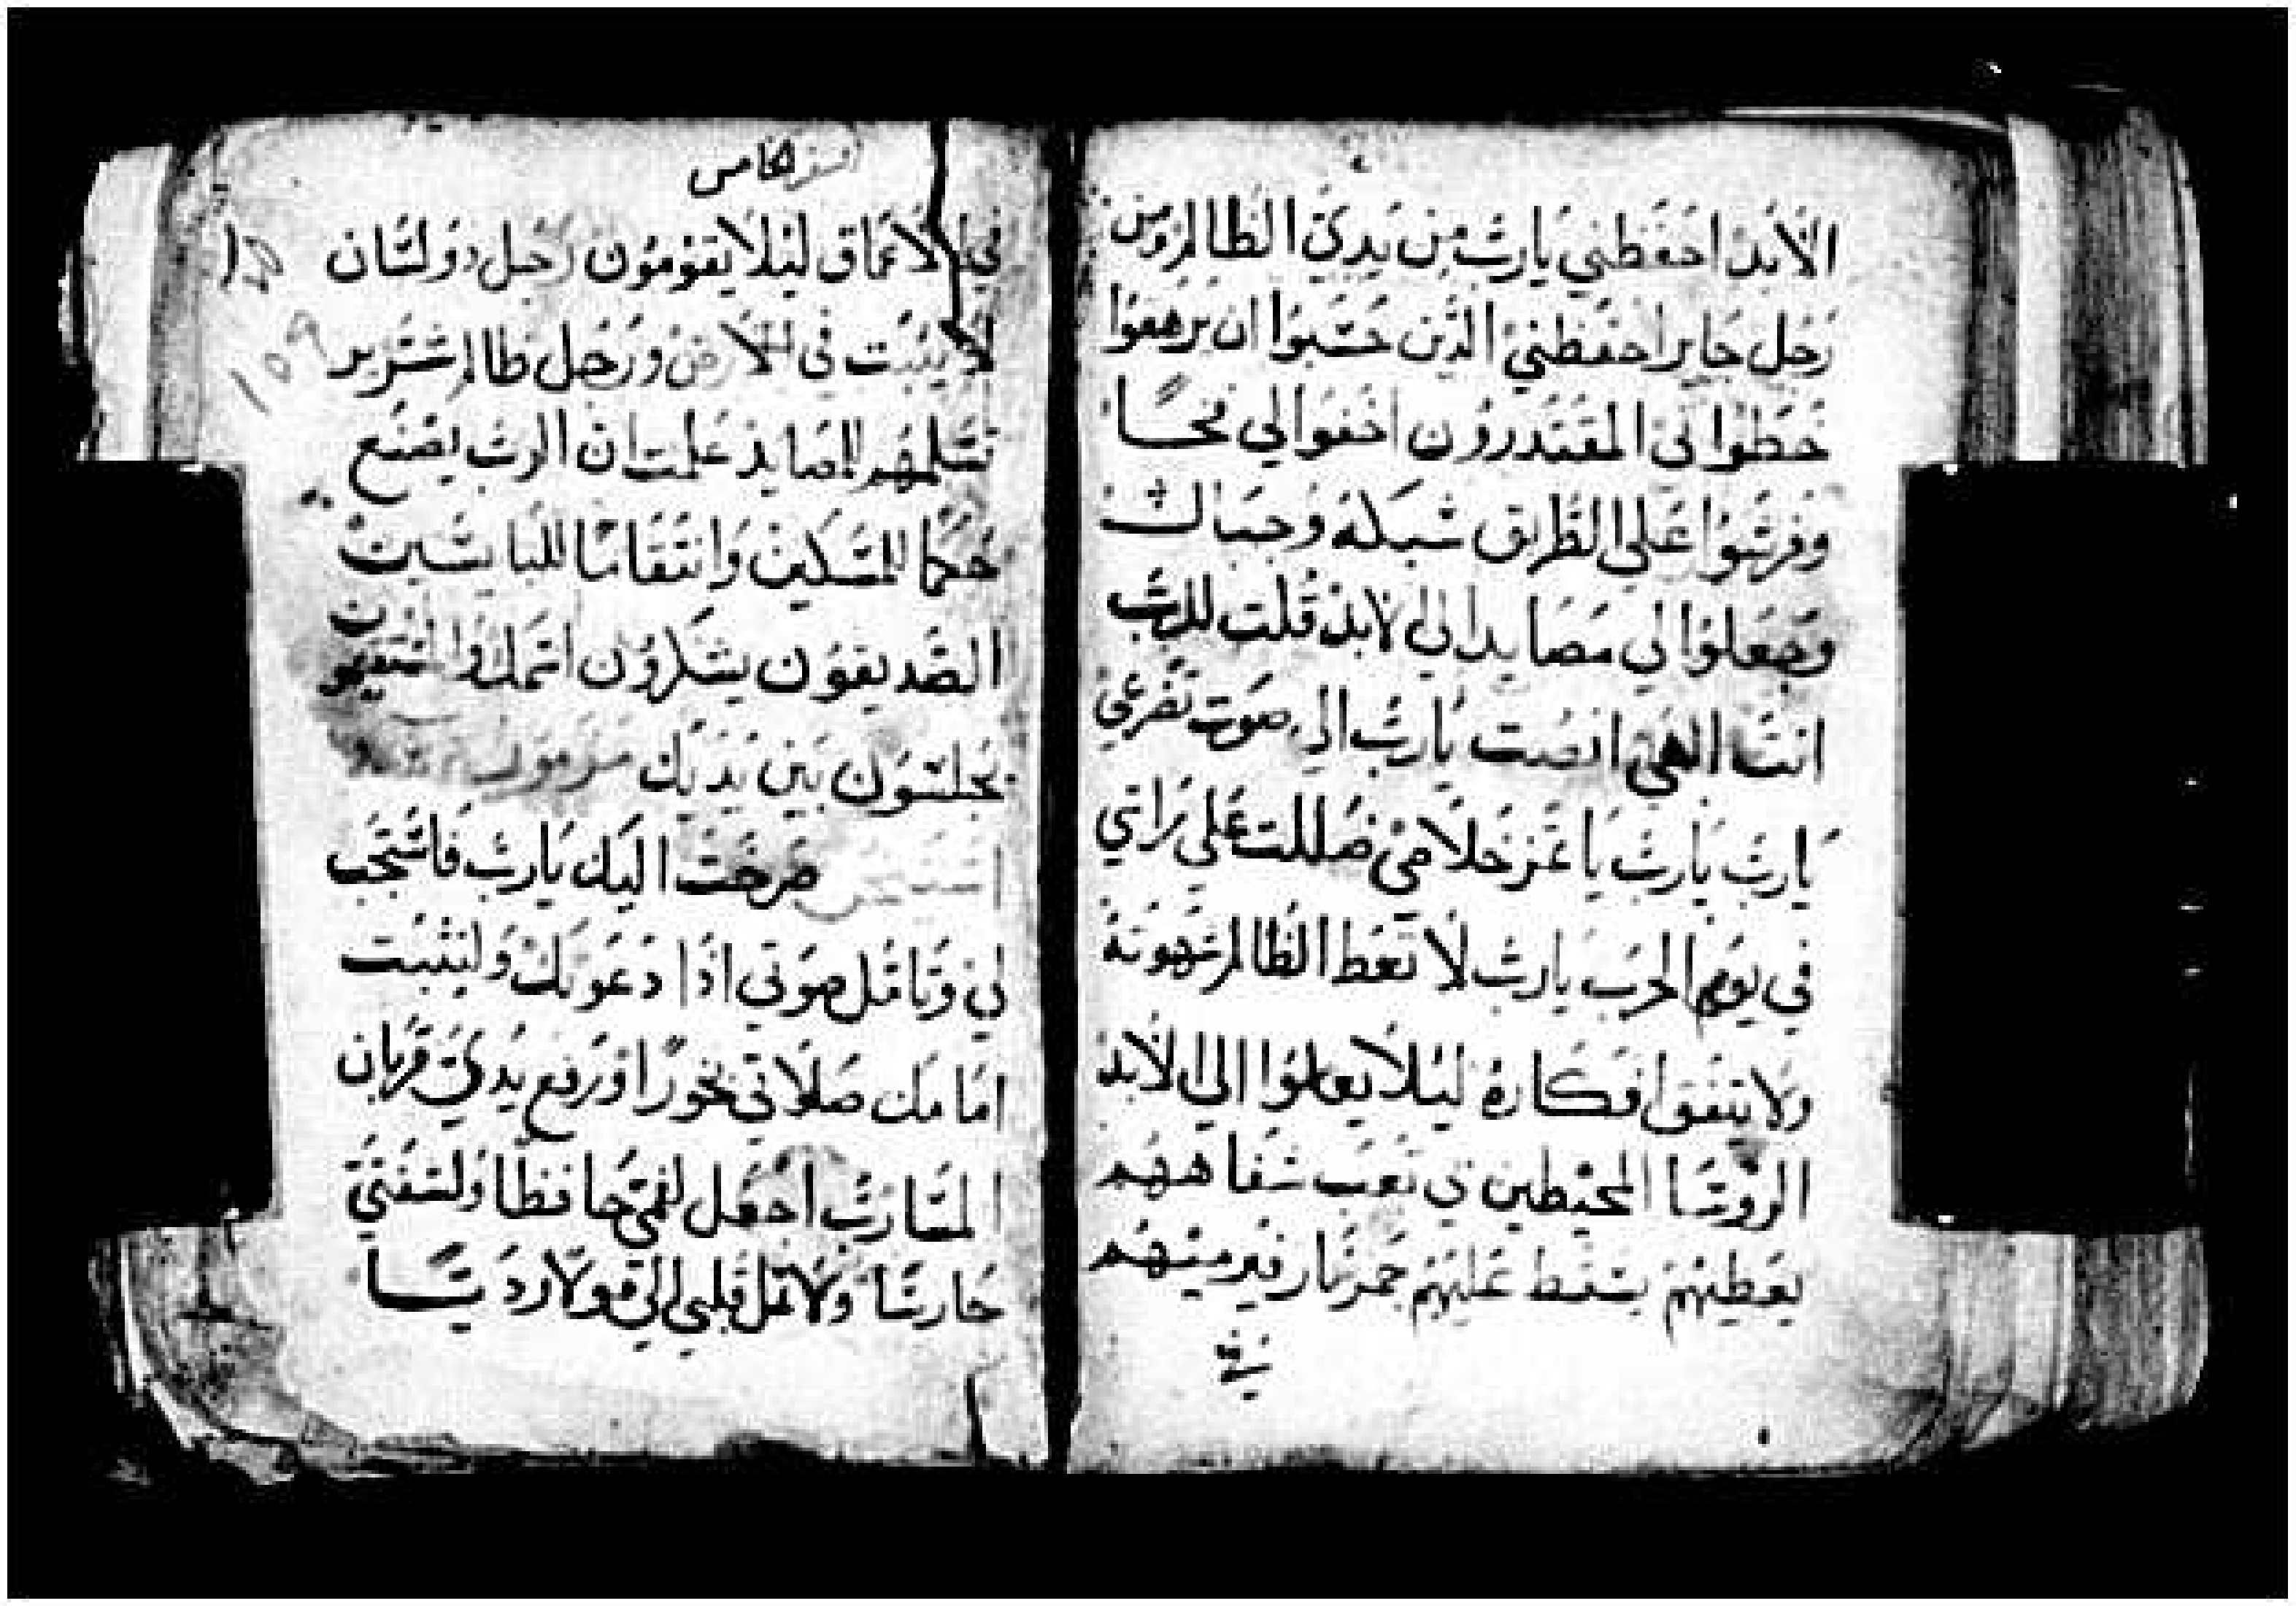 الأبد احفظني يارب من يدي الظالم ومن
رجل جاير احفظني الذين حسبوا ان يزعزعوا
خطواتي المقتدرون اخفوا لي فخا
وفرشوا على الطريق شبكة وحبال
وجعلوا لي مصايد الى الابد قلت للرب
انت الهي انصت يارب الى صوت تضرعي
يارب يارب يا عز خلاصي ظللت على راسي
في يوم الحرب يارب لا تعط الظالم شهوته
ولا يتفق افكاره ليلا يعلوا الى الابد
الروسا المحيطين بي تعب شفاههم
يعطيهم يسقط عليهم جمر نار فيرميهم
في
في الاعماق ليلا يقومون رجل ذو لسان
لا يثبت في الارض ورجل ظالم شرير
تسلمهم المصايد علمت ان الرب يصنع
حكما للمسكين وانتقاما للبايسين
الصديقون يشكرون اسمك والمستقيمون
يجلسون بين يديك مزمور
صرخت اليك يارب فاستجب
لي وتامل صوتي اذا دعوتك ولتثبت
امامك صلاتي بخورا ورفع يدي قربان
المسا رب اجعل لفمي حافظا ولشفتي
حارسا ولا تمل قلبي الى قولا رديا
١٥٩